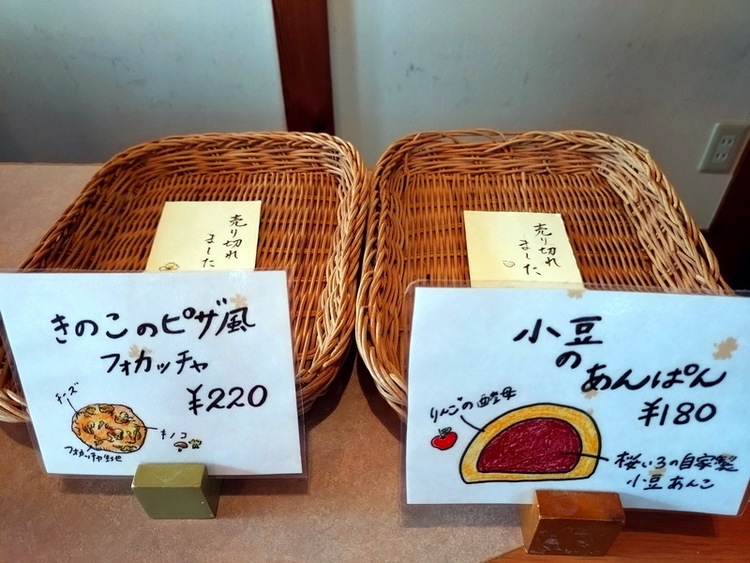 売り切れ
ました
売り切れ
ました
きのこのピザ風
フォカッチャ
¥220
チーズ
キノコ
フォカッチャ生地
小豆
の
あんぱん
¥180
りんごの酵母
桜いろの自家製
小豆あんこ